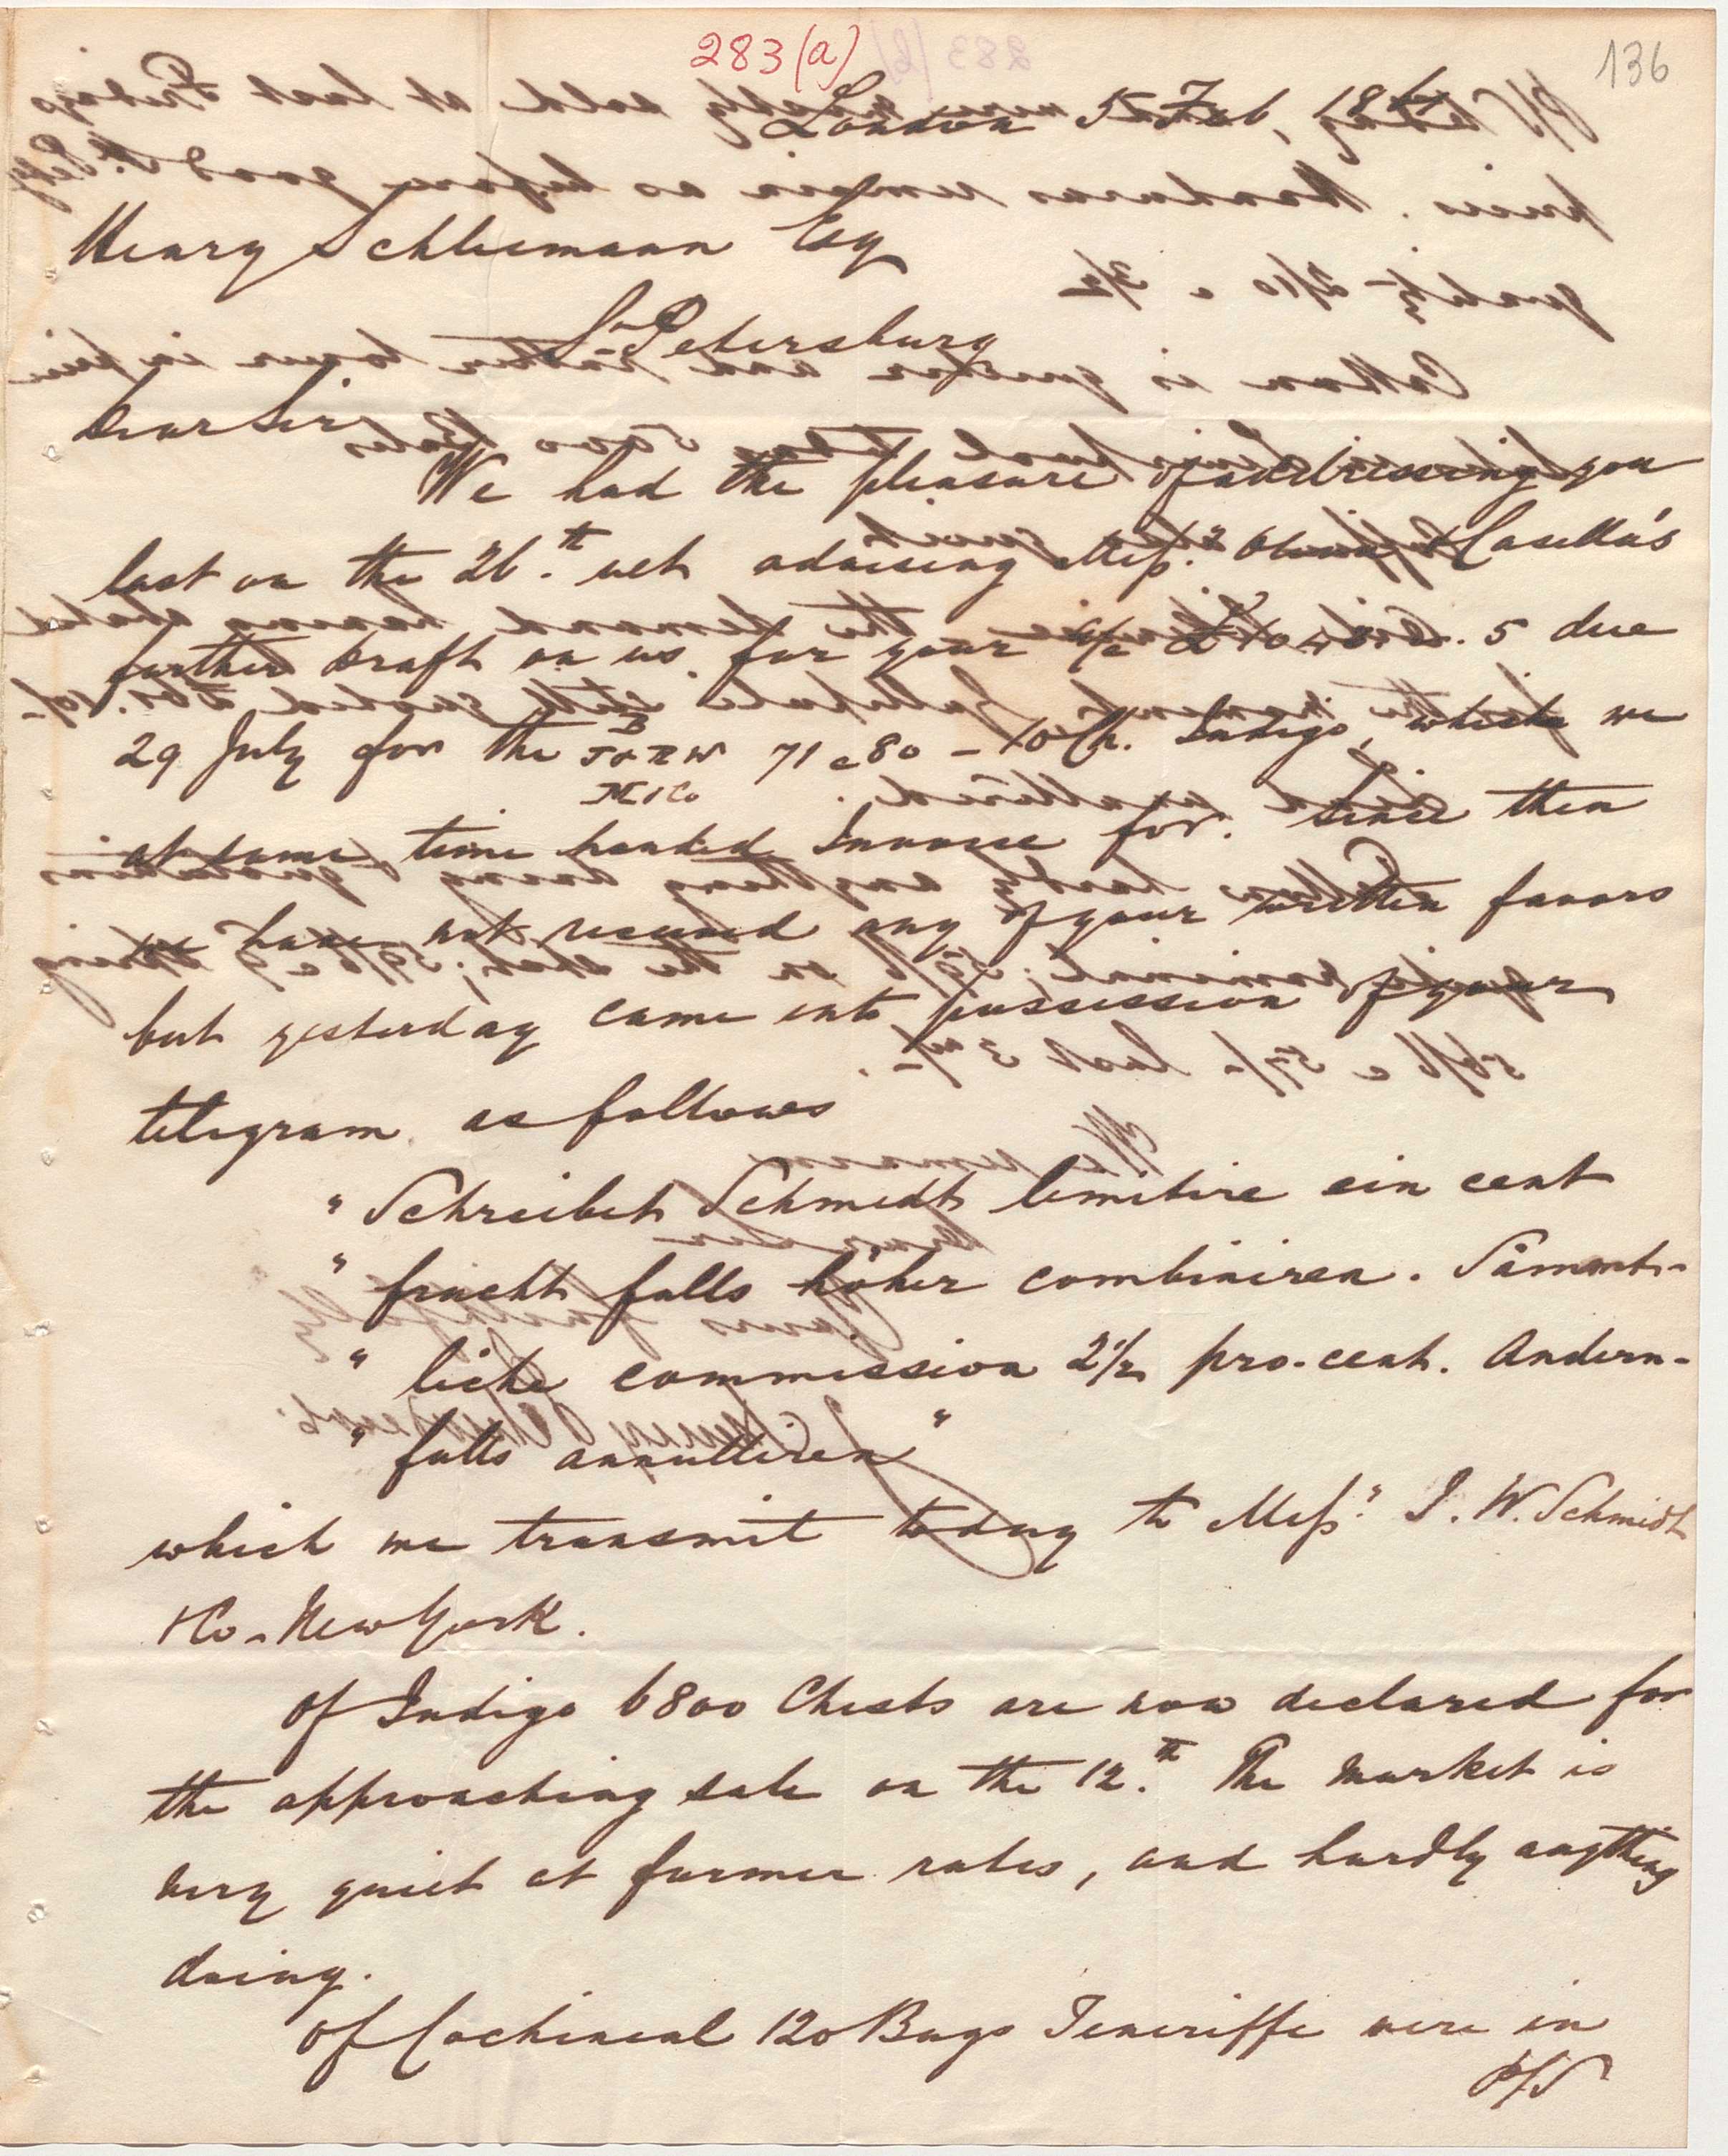 283(a)
136
London 5 Feb, 186
Henry Schliemann Esq
St Petersburg
Dear Sir
We had the pleasure of addressing you
last on the 26.th ult advising Mess.rs & Casella's
further Draft on us for your a/c £ . 5 due
29 July for the B J&RW 71 a 80 – 10 Ch. Indigo, which we
M & Co
at same time handed Invoice for. Since then
we have not received any of your written favors
but yesterday came into possession of your
telegram as follows
" Schreibet Schmidt limitire ein cent
" fracht falls höher combiniren. Sämmt-
" liche commission 2½ pro-cent. Andern-
" falls annulliren"
which we transmit today to Mess.rs J. W. Schmidt
& Co - New York.
Of Indigo 6800 Chests are now declared for
the approaching sale on the 12.th The Market is
very quiet at former rates, and hardly anything
doing.
Of Cochineal 120 Bags Teneriffe were in
P/S